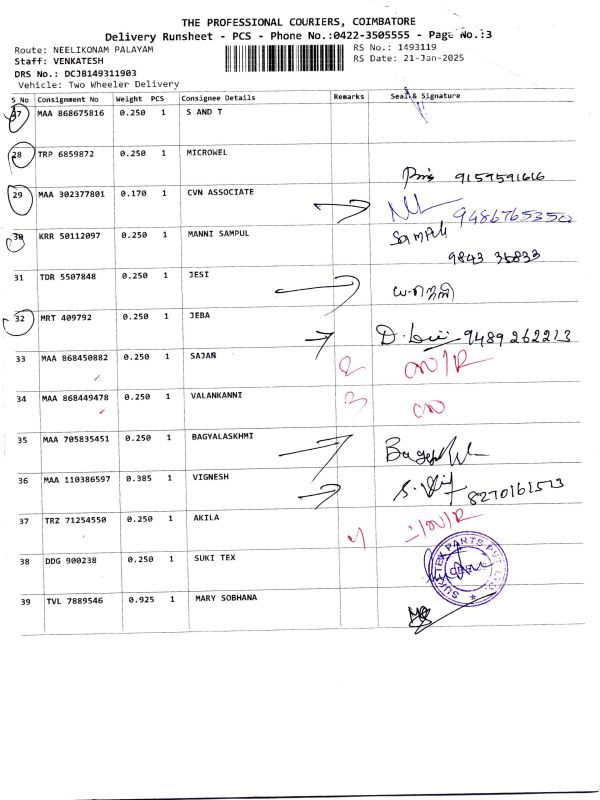 THE PROFESSIONAL COURIERS, COIMBATORE
Delivery Runsheet - PCS - Phone No.:0422-3505555 - Page No.:3
Route: NEELIKONAM PALAYAM
RS No.: 1493119
Staff: VENKATESH
RS Date: 21-Jan-2025
DRS No.: DCJB149311903
Vehicle: Two Wheeler Delivery
S No Consignment No Weight PCS Consignee Details Remarks Seal & Signature
27 MAA 868675816 0.250 1 S AND T
28 TRP 6859872 0.250 1 MICROWEL
9159591616
29 MAA 302377801 0.170 1 CVN ASSOCIATE
9486765350
30 KRR 50112097 0.250 1 MANNI SAMPUL Sampul
9843 35833
31 TDR 5507848 0.250 1 JESI
32 MRT 409792 0.250 1 JEBA
9489262213
33 MAA 868450882 0.250 1 SAJAN
34 MAA 868449478 0.250 1 VALANKANNI 3
35 MAA 705835451 0.250 1 BAGYALASKHMI
36 MAA 110386597 0.385 1 VIGNESH
8270161573
37 TRZ 71254550 0.250 1 AKILA
38 DDG 900238 0.250 1 SUKI TEX
39 TVL 7889546 0.925 1 MARY SOBHANA